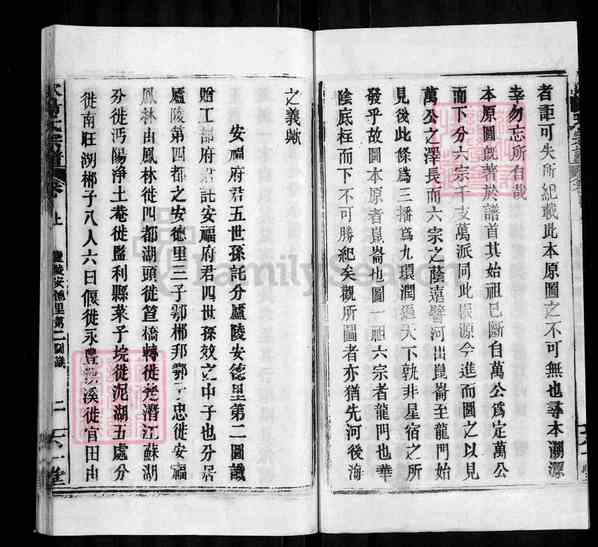 者詎可失所紀載此本原圖之不可無也尋本溯源
幸勿忘所自哉
本原圖旣著於譜首其始祖已斷自萬公爲定萬公
而下分六宗千支萬派同此振源今進而圖之以見
萬公之澤長而六宗之蔭遠譬河出崑崙至龍門始
見後此條爲三播爲九環潤遍天下孰非星宿之所
發乎故圖本原者崑崙也圖一祖六宗者龍門也華
陰底柱而下不可勝紀矣觀所圖者亦猶先河後海
之義歟
安福府君五世孫託分廬陵安德里第二圖譜
贈工部府君託安福府君四世孫效之中子也分居
廬陵第四都之安德里三子鄂郴邦鄂子忠徙安福
鳳林由鳳林徙四都湖頭徙簹橋轉徙潛江蘇湖
分徙沔陽淨土菴徙監利縣菜子垸徙泥湖五處分
徙南旺湖郴子八人六日偃徙永豐溪徙官田由
宗譜
卷上
廬陵安德里第二圖譜
二
六一堂